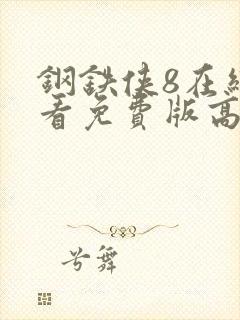 鋼鉄俠8在線
看免費版高
兮舞